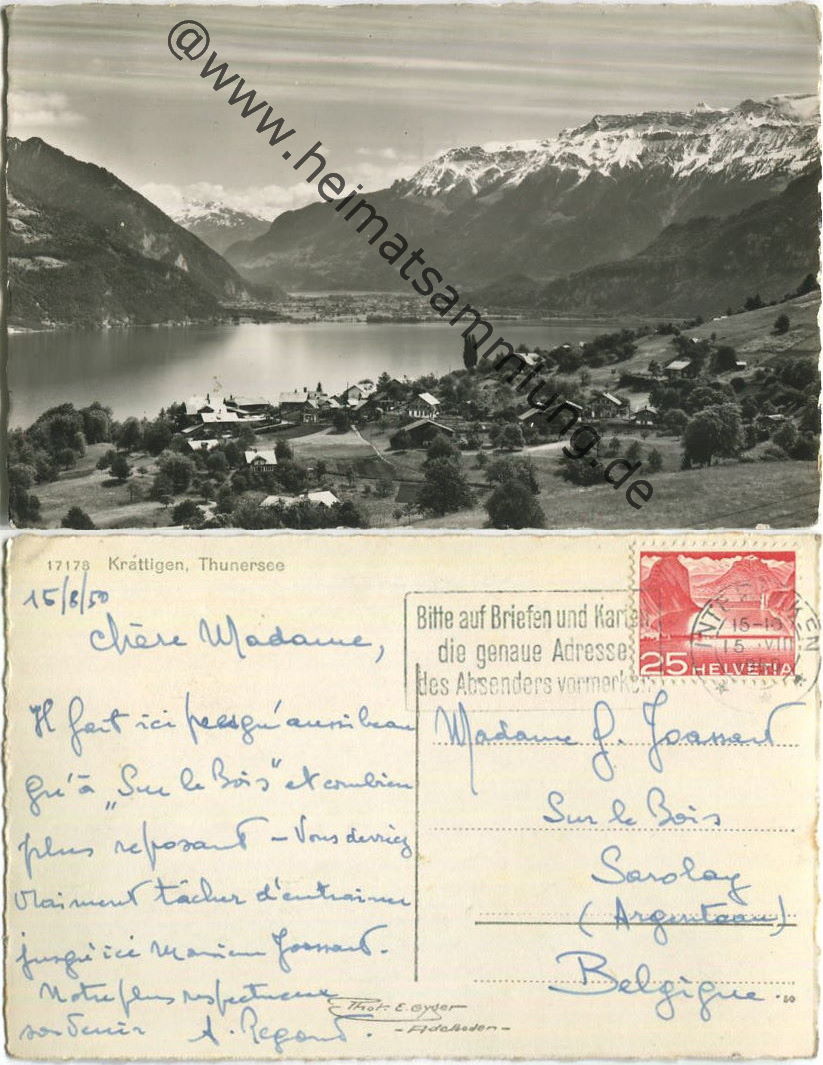 @www.heimatsammlung.de
17178 Krattigen, Thunersee
15/8/50
Chère Madame,
Il fait ici presqu'aussi beau
qu'à „Sur le Bois" et combien
plus reposant – Vous devriez
vraiment tâcher d'entrainer
jusqu'ici Monsieur Joassart.
Notre plus respectueux
souvenir A. Regout.
Bitte auf Briefen und Karten
die genaue Adresse
des Absenders vormerken
25 HELVETIA
INTERLAKEN
15-16
15. VIII
Madame G. Joassart
Sur le Bois
Sarolay
(Argenteau)
Belgique.
Phot. E. Gyger
– Adelboden –